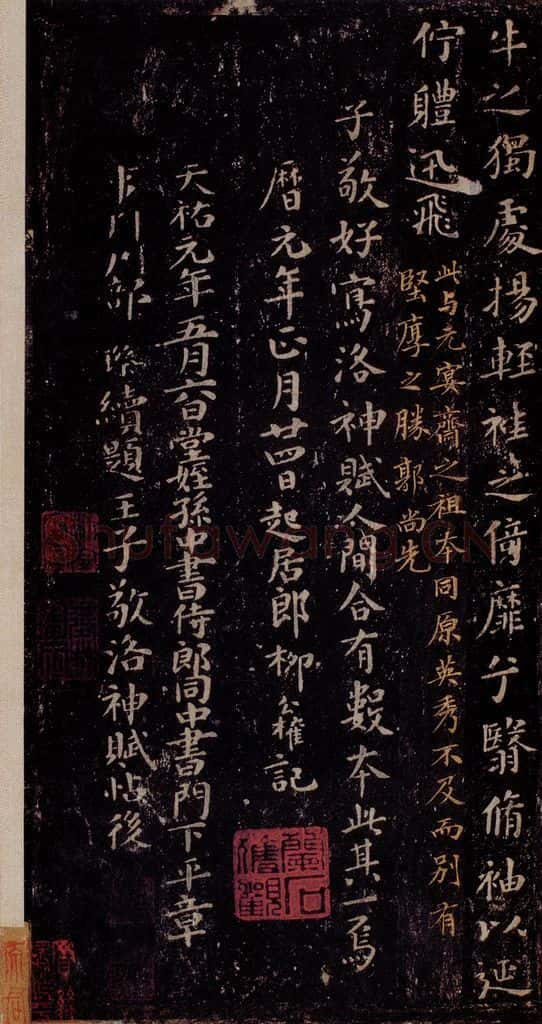 牛之獨處揚輕袿之倚靡兮翳脩袖以延
佇軆迅飛
此与元宴齋之祖本同原英秀不及而別有
堅厚之勝郭尚先
子敬好寫洛神賦人間合有數本此其一焉
曆元年正月廿四日起居郎柳公權記
天祐元年五月六日堂姪孫中書侍郎同中書門下平章
續題王子敬洛神賦帖後
Shufawang.CN